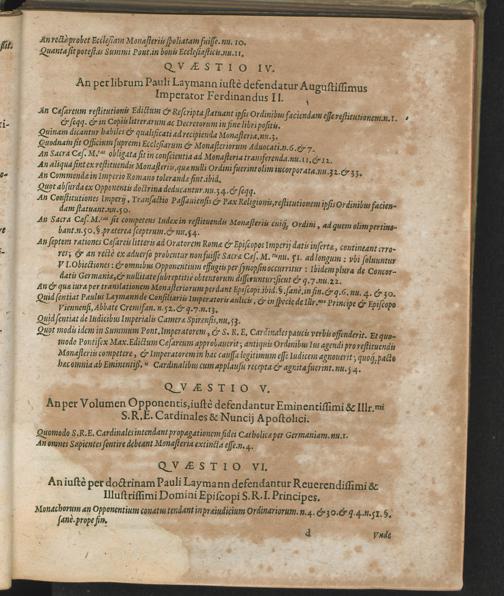 An rectè probet Ecclesiam Monasteriis spoliatam fuisse. nu. 10.
Quanta sit potestas Summi Pont. in bonis Ecclesiasticis. nu. 11.
QVÆSTIO IV.
An per librum Pauli Laymann iustè defendatur Augustissimus
Imperator Ferdinandus II.
An Cæsareum restitutionis Edictum & Rescripta statuant ipsis Ordinibus faciendam esse restitutionem. n. 1.
& seqq. & in Copiis literarum ac Decretorum in fine libri positis.
Quinam dicantur habiles & qualificati ad recipienda Monasteria. nu. 3.
Quodnam sit Officium supremi Ecclesiarum & Monasteriorum Advocati. n. 6. & 7.
An Sacra Cæs. M.tas obligata sit in conscientia ad Monasteria transferenda. nu. 11. & 12.
An aliqua sint ex restituendis Monasteriis, quæ nulli Ordini fuerint olim incorporata. nu. 32. & 33.
An Commendæ in Imperio Romano tolerandæ sint. ibid.
Quot absurda ex Opponentis doctrina deducantur. nu. 34. & seqq.
An Constitutiones Imperij, Transactio Passauiensis & Pax Religionis, restitutionem ipsis Ordinibus faciendam
statuant. nu. 50.
An Sacra Cæs. M.tas sit competens Iudex in restituendis Monasteriis cuiq; Ordini, ad quem olim pertinebant.
n. 50. §. præterea sceptrum. & nu. 54.
An septem rationes Cæsareis litteris ad Oratorem Romæ & Episcopos Imperij datis insertæ, contineant errores;
& an rectè ex adverso probentur non fuisse Sacræ Cæs. M. nu. 51. ad longum: vbi soluuntur
VI. Obiectiones: & omnibus Opponentium effugiis per synopsin occurritur: Ibidem plura de Concordatis
Germaniæ, & nullitate subreptitiè obtentorum disseruntur; sicut & q. 7. nu. 22.
An & qua iura per translationem Monasteriorum perdant Episcopi. ibid. §. sanè, in fin. & q. 6. nu. 4. & 30.
Quid sentiat Paulus Laymann de Consiliariis Imperatoris aulicis, & in specie de Illr.mo Principe & Episcopo
Viennensi, Abbate Cremsfan. n. 52. & q. 7. n. 13.
Quid sentiat de Iudicibus Imperialis Cameræ Spirensis. nu. 53.
Quot modis idem in Summum Pont. Imperatorem, & S. R. E. Cardinales paucis verbis offenderit. Et quomodo
Pontifex Max. Edictum Cæsareum approbauerit; antiquis Ordinibus Ius agendi pro restituendis
Monasteriis competere, & Imperatorem in hac caussa legitimum esse Iudicem agnouerit; quoq; pacto
hæc omnia ab Eminentiss.is Cardinalibus cum applausu recepta & agnita fuerint. nu. 54.
QVÆSTIO V.
An per Volumen Opponentis, iustè defendantur Eminentissimi & Illr.mi
S.R.E. Cardinales & Nuncij Apostolici.
Quomodo S.R.E. Cardinales intendant propagationem fidei Catholicæ per Germaniam. nu. 1.
An omnes Sapientes sentire debeant Monasteria extincta esse. n. 4.
QVÆSTIO VI.
An iustè per doctrinam Pauli Laymann defendantur Reuerendissimi &
Illustrissimi Domini Episcopi S.R.I. Principes.
Monachorum an Opponentium conatus tendant in præiudicium Ordinariorum. n. 4. & 30. & q. 4. n. 51. §.
sanè. prope fin.
d Vnde